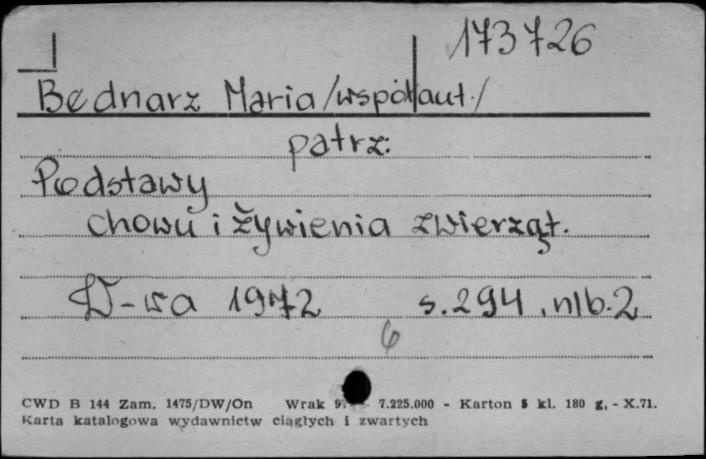 173726
Bednarz Maria /współaut./
patrz:
Podstawy
chowu i żywienia zwierząt.
W-wa 1972 s. 294, nlb. 2
6
CWD B 144 Zam. 1475/DW/On Wrak 7.225.000 - Karton 5 kl. 180 g, - X.71.
Karta katalogowa wydawnictw ciągłych i zwartych